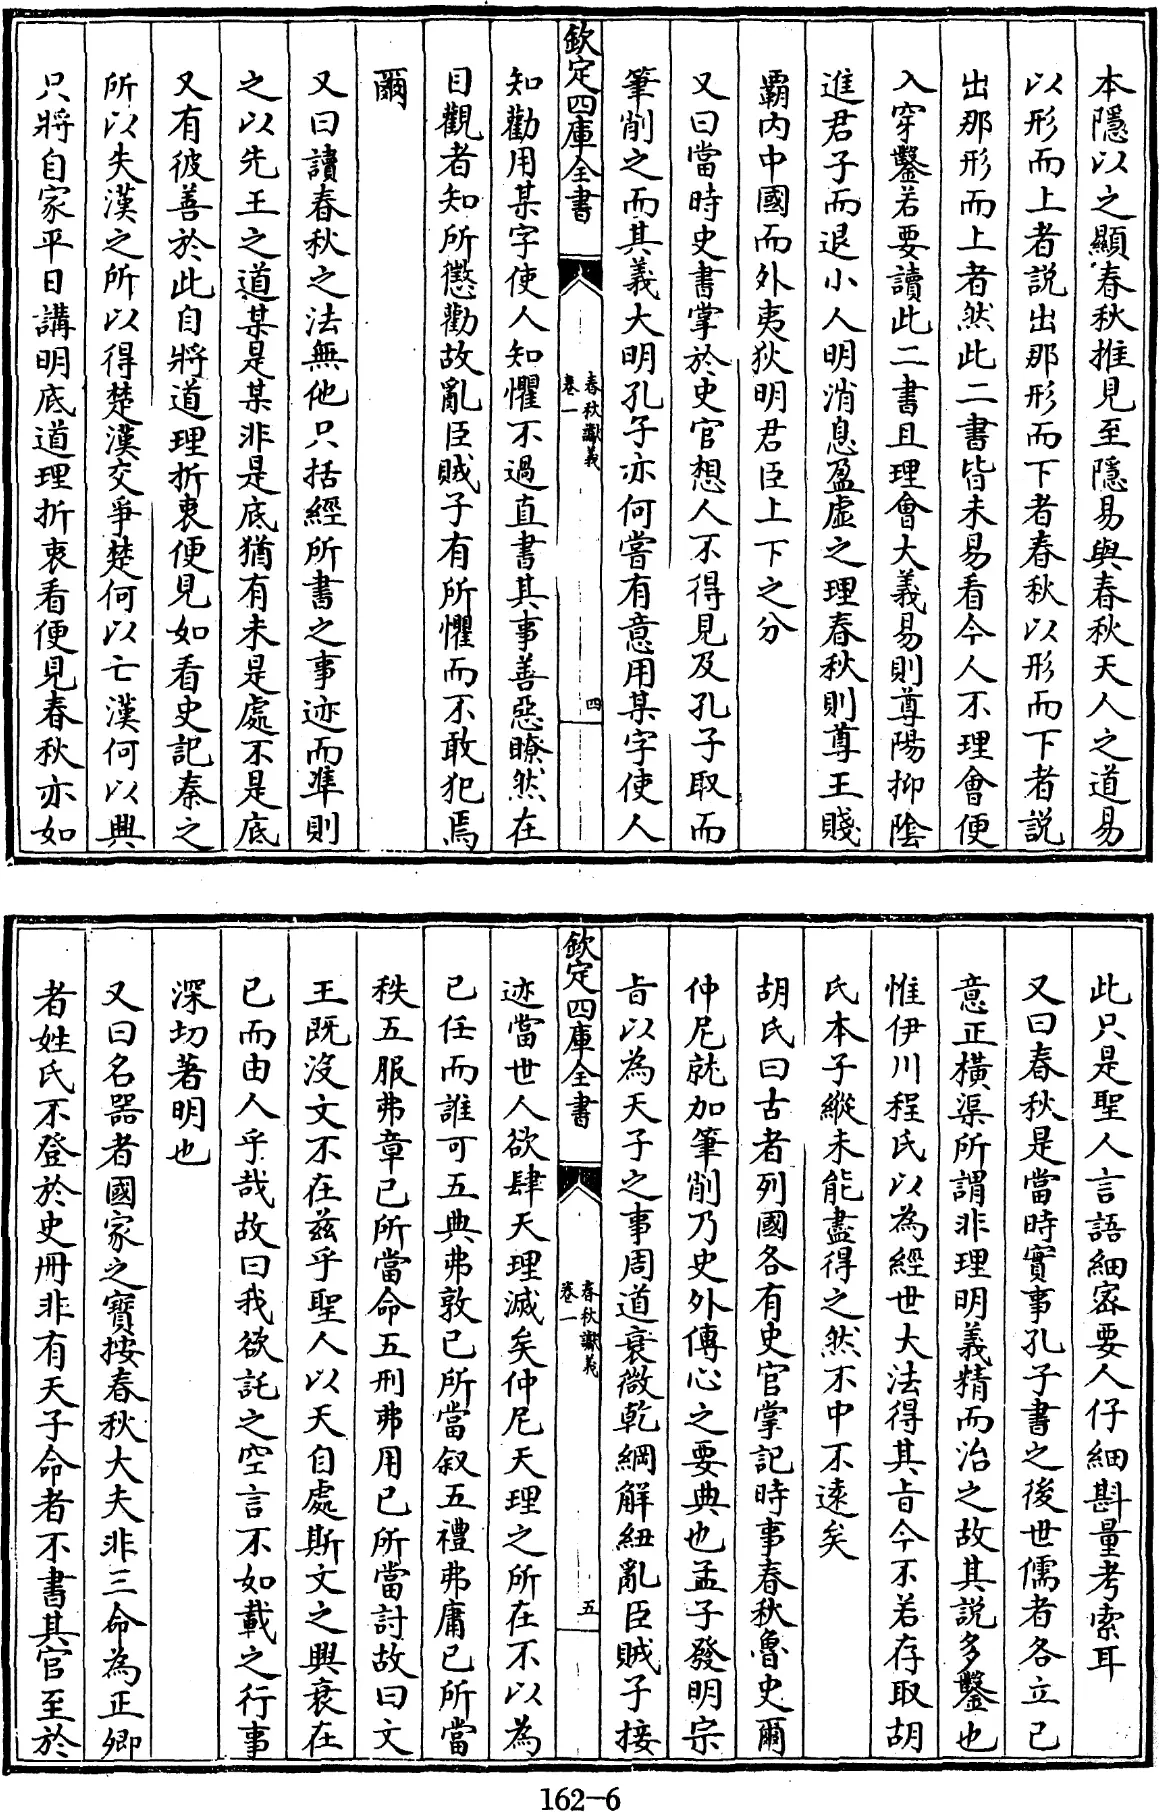 本隱以之顯春秋推見至隱易與春秋天人之道易
以形而上者説出那形而下者春秋以形而下者説
出那形而上者然此二書皆未易看今人不理會便
入穿鑿若要讀此二書且理會大義易則尊陽抑陰
進君子而退小人明消息盈虛之理春秋則尊王賤
霸内中國而外夷狄明君臣上下之分
又曰當時史書掌於史官想人不得見及孔子取而
筆削之而其義大明孔子亦何嘗有意用某字使人
欽定四庫全書
春秋讞義
卷一
四
知勸用某字使人知懼不過直書其事善惡瞭然在
目觀者知所懲勸故亂臣賊子有所懼而不敢犯焉
爾
又曰讀春秋之法無他只括經所書之事迹而準則
之以先王之道某是某非是底猶有未是處不是底
又有彼善於此自將道理折衷便見如看史記秦之
所以失漢之所以得楚漢交爭楚何以亡漢何以興
只將自家平日講明底道理折衷看便見春秋亦如
此只是聖人言語細宻要人仔細斟量考索耳
又曰春秋是當時實事孔子書之後世儒者各立己
意正横渠所謂非理明義精而治之故其説多鑿也
惟伊川程氏以為經世大法得其旨今不若存取胡
氏本子縱未能盡得之然不中不遠矣
胡氏曰古者列國各有史官掌記時事春秋魯史爾
仲尼就加筆削乃史外傳心之要典也孟子發明宗
旨以為天子之事周道衰微乾綱解紐亂臣賊子接
欽定四庫全書
春秋讞義
卷一
五
迹當世人欲肆天理滅矣仲尼天理之所在不以為
己任而誰可五典弗敦己所當叙五禮弗庸己所當
秩五服弗章己所當命五刑弗用己所當討故曰文
王既没文不在兹乎聖人以天自處斯文之興衰在
己而由人乎哉故曰我欲託之空言不如載之行事
深切著明也
又曰名器者國家之寶按春秋大夫非三命為正卿
者姓氏不登於史冊非有天子命者不書其官至於
162-6